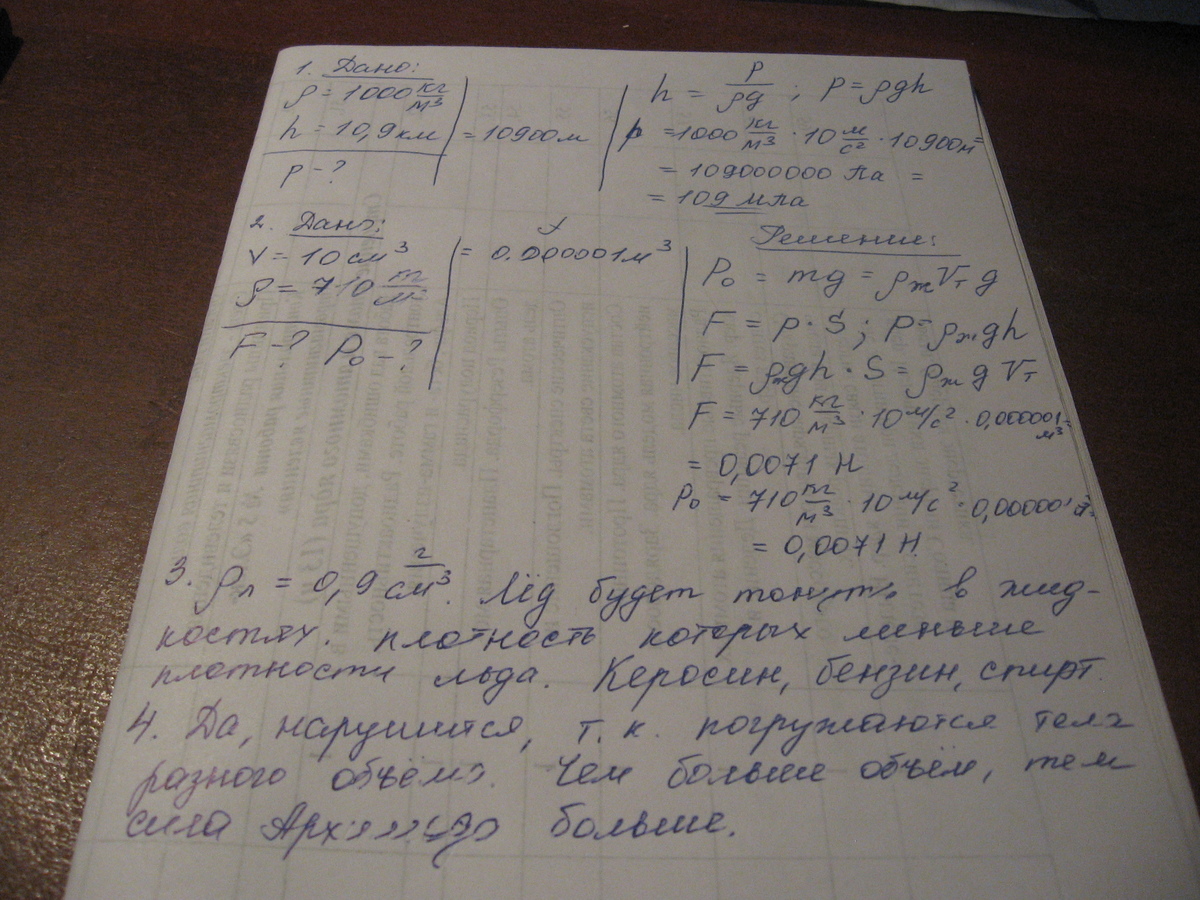 1. Дано:
ρ = 1000 кг/м³
h = 10,9 км = 10900 м
p - ?
h = p/ρg ; P = ρgh
p = 1000 кг/м³ · 10 м/с² · 10900 м =
= 109000000 Па =
= 109 мПа
2. Дано:
V = 10 см³ = 0.000001 м³
ρ = 710 кг/м³
F - ? P₀ - ?
Решение:
P₀ = mg = ρжVт g
F = p · S ; P = ρжgh
F = ρжgh · S = ρж g Vт
F = 710 кг/м³ · 10 м/с² · 0,000001 м³ =
= 0,0071 Н
P₀ = 710 кг/м³ · 10 м/с² · 0,000001
= 0,0071 Н
3. ρл = 0,9 г/см³. Лёд будет тонуть в жид-
костях. плотность которых меньше
плотности льда. Керосин, бензин, спирт.
4. Да, нарушится, т.к. погружаются тела
разного объёма. Чем больше объём, тем
сила больше.